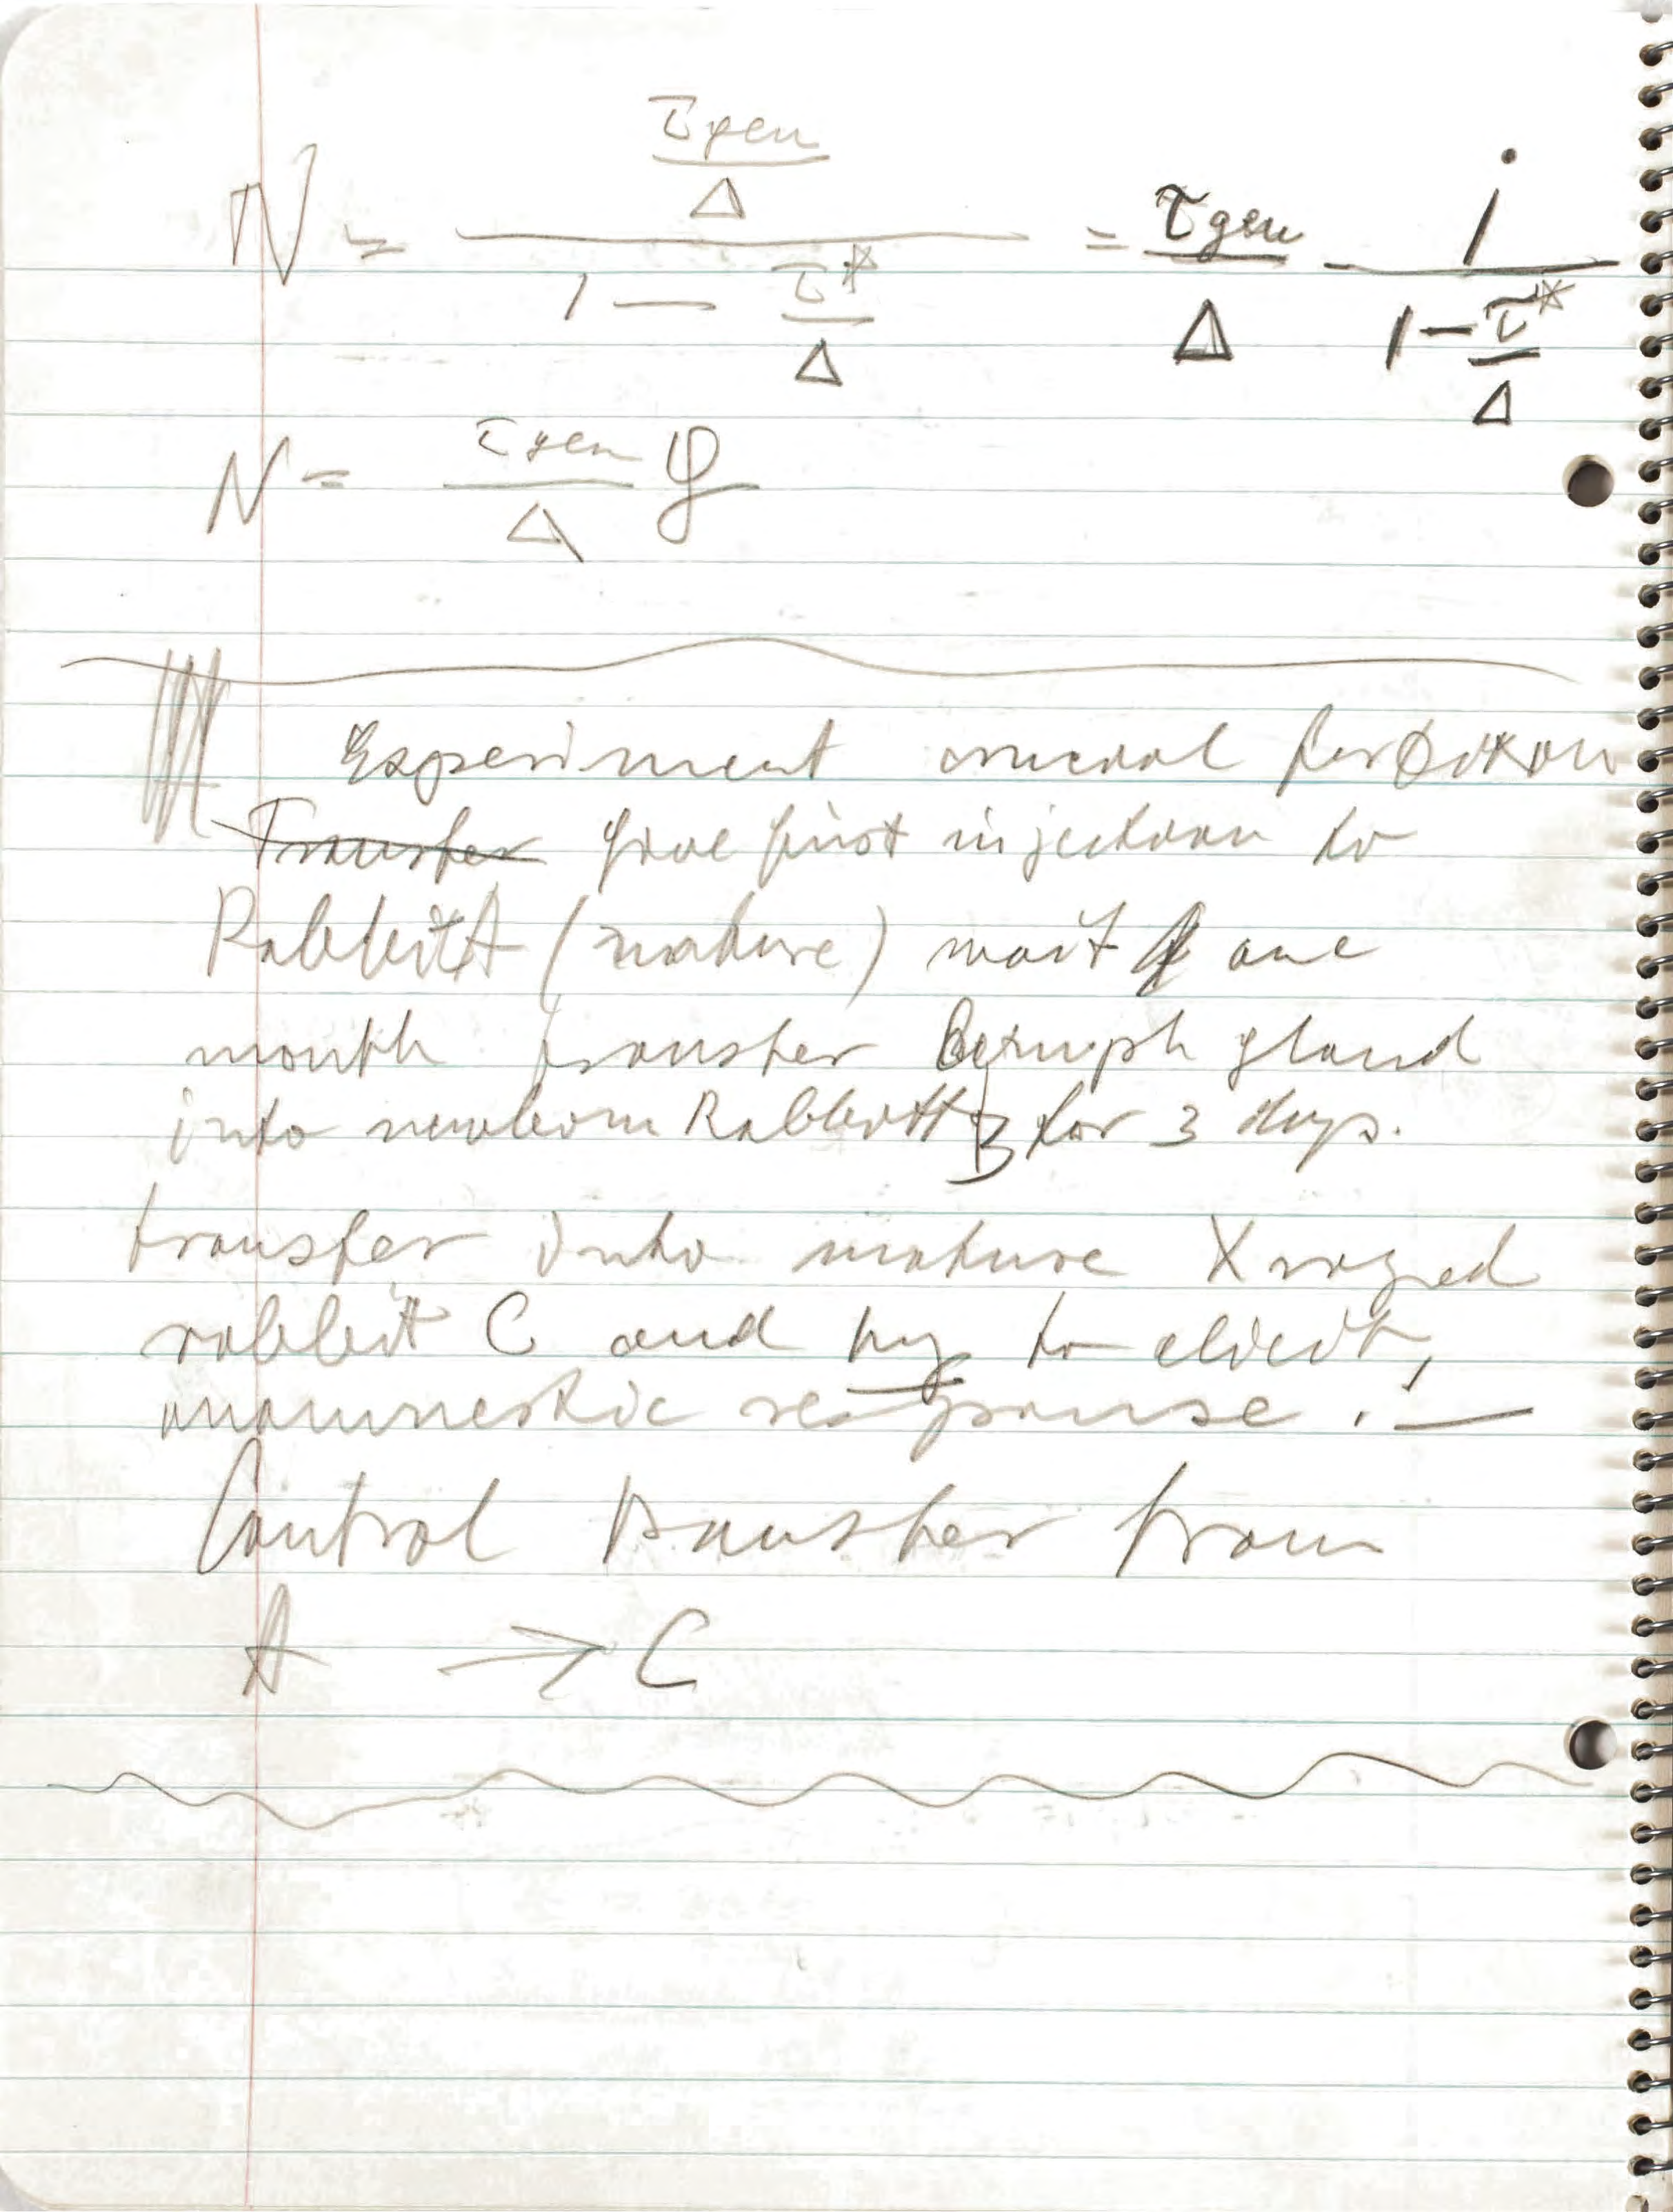 N = (τgen/Δ)/(1 - τ*/Δ) = τgen/Δ 1/(1 - τ*/Δ)
N = τgen/Δ φ
Experiment crucial for Dixon
Transfer give first injection to
Rabbit A (mature) wait one
month transfer lymph gland
into newborn Rabbit B for 3 days.
transfer into mature X rayed
rabbit C and try to elicit,
anamnestic response. —
Control transfer from
A → C